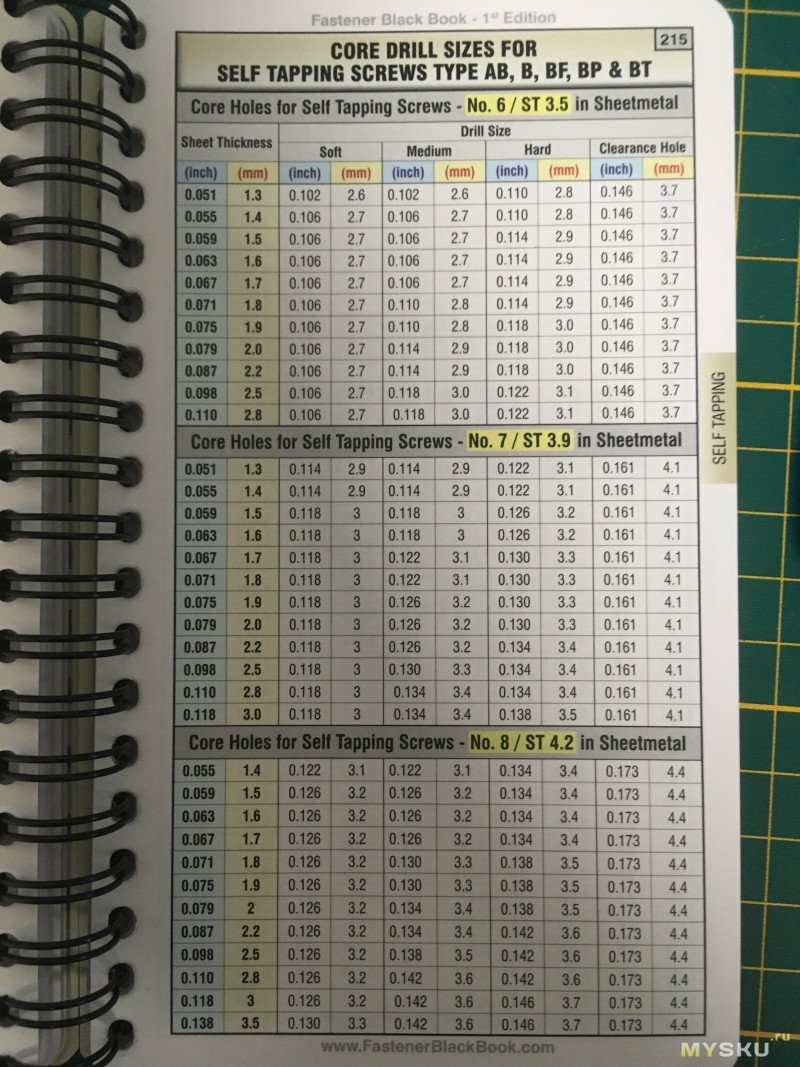 Fastener Black Book - 1st Edition
215
CORE DRILL SIZES FOR
SELF TAPPING SCREWS TYPE AB, B, BF, BP & BT
Core Holes for Self Tapping Screws - No. 6 / ST 3.5 in Sheetmetal
Sheet Thickness Drill Size
Soft Medium Hard Clearance Hole
(inch) (mm) (inch) (mm) (inch) (mm) (inch) (mm) (inch) (mm)
0.051 1.3 0.102 2.6 0.102 2.6 0.110 2.8 0.146 3.7
0.055 1.4 0.106 2.7 0.106 2.7 0.110 2.8 0.146 3.7
0.059 1.5 0.106 2.7 0.106 2.7 0.114 2.9 0.146 3.7
0.063 1.6 0.106 2.7 0.106 2.7 0.114 2.9 0.146 3.7
0.067 1.7 0.106 2.7 0.106 2.7 0.114 2.9 0.146 3.7
0.071 1.8 0.106 2.7 0.110 2.8 0.114 2.9 0.146 3.7
0.075 1.9 0.106 2.7 0.110 2.8 0.118 3.0 0.146 3.7
0.079 2.0 0.106 2.7 0.114 2.9 0.118 3.0 0.146 3.7
0.087 2.2 0.106 2.7 0.114 2.9 0.118 3.0 0.146 3.7
0.098 2.5 0.106 2.7 0.118 3.0 0.122 3.1 0.146 3.7
0.110 2.8 0.106 2.7 0.118 3.0 0.122 3.1 0.146 3.7
SELF TAPPING
Core Holes for Self Tapping Screws - No. 7 / ST 3.9 in Sheetmetal
0.051 1.3 0.114 2.9 0.114 2.9 0.122 3.1 0.161 4.1
0.055 1.4 0.114 2.9 0.114 2.9 0.122 3.1 0.161 4.1
0.059 1.5 0.118 3 0.118 3 0.126 3.2 0.161 4.1
0.063 1.6 0.118 3 0.118 3 0.126 3.2 0.161 4.1
0.067 1.7 0.118 3 0.122 3.1 0.130 3.3 0.161 4.1
0.071 1.8 0.118 3 0.122 3.1 0.130 3.3 0.161 4.1
0.075 1.9 0.118 3 0.126 3.2 0.130 3.3 0.161 4.1
0.079 2.0 0.118 3 0.126 3.2 0.130 3.3 0.161 4.1
0.087 2.2 0.118 3 0.126 3.2 0.134 3.4 0.161 4.1
0.098 2.5 0.118 3 0.130 3.3 0.134 3.4 0.161 4.1
0.110 2.8 0.118 3 0.134 3.4 0.134 3.4 0.161 4.1
0.118 3.0 0.118 3 0.134 3.4 0.138 3.5 0.161 4.1
Core Holes for Self Tapping Screws - No. 8 / ST 4.2 in Sheetmetal
0.055 1.4 0.122 3.1 0.122 3.1 0.134 3.4 0.173 4.4
0.059 1.5 0.126 3.2 0.126 3.2 0.134 3.4 0.173 4.4
0.063 1.6 0.126 3.2 0.126 3.2 0.134 3.4 0.173 4.4
0.067 1.7 0.126 3.2 0.126 3.2 0.134 3.4 0.173 4.4
0.071 1.8 0.126 3.2 0.130 3.3 0.138 3.5 0.173 4.4
0.075 1.9 0.126 3.2 0.130 3.3 0.138 3.5 0.173 4.4
0.079 2 0.126 3.2 0.134 3.4 0.138 3.5 0.173 4.4
0.087 2.2 0.126 3.2 0.134 3.4 0.142 3.6 0.173 4.4
0.098 2.5 0.126 3.2 0.138 3.5 0.142 3.6 0.173 4.4
0.110 2.8 0.126 3.2 0.142 3.6 0.142 3.6 0.173 4.4
0.118 3 0.126 3.2 0.142 3.6 0.146 3.7 0.173 4.4
0.138 3.5 0.130 3.3 0.142 3.6 0.146 3.7 0.173 4.4
www.FastenerBlackBook.com
MYSKU.ru